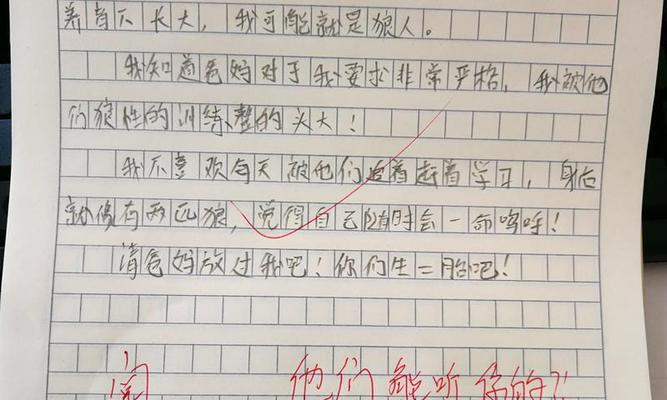 养育下长大，我可能就是狼人。
我知道爸妈对于我要求非常严格，我被他
们狼性的训练、整的头大！
我不喜欢每天被他们追着赶着学习，身后
就像有两匹狼，觉得自己随时会一命呜呼！
清爸妈放过我吧！你们生二胎吧！
阅 他们能听你的？！